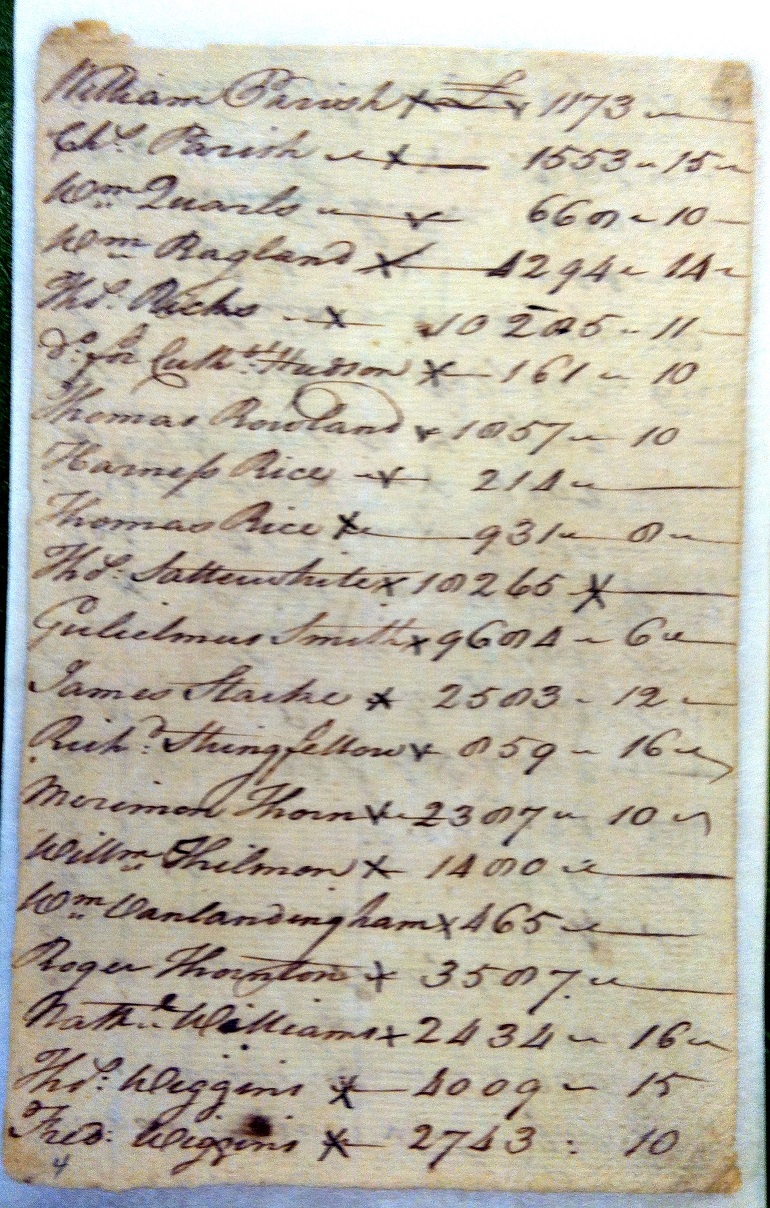 William Parish x £ 1173
Chs. Parish x 1553 - 15
Wm Quarls 668 - 10
Wm Ragland x 4294 - 14
Thos. Ricks x 10285 - 11
Do. for Cuthbt. Hudson x 161 - 10
Thomas Rowland 1857 - 10
Harness Rice 214
Thomas Rice x 931 - 8
Thos. Sattewhite x 18265 x
Gulielmus Smith x 9684 - 6
James Starke x 2583 - 12
Richd. Stringfellow 859 - 16
Merimon Thorn x 2387 - 10
Willm Thilmon x 1480
Wm Vanlandingham x 465
Roger Thornton x 3587
Nathl. Williams x 2434 - 16
Thos. Wiggins x 4009 - 15
Fred: Wiggins x 2743 : 10
4